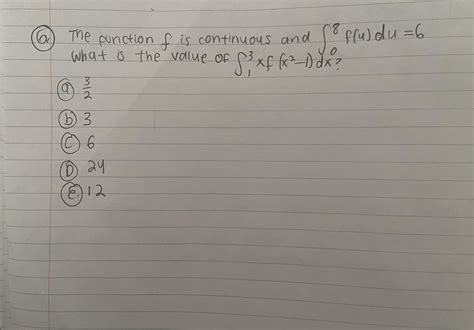 6 The function f is continuous and ∫₀⁸ f(u) du = 6
What is the value of ∫₁³ xf (x²-1) dx?
a 3/2
b 3
C 6
D 24
E. 12